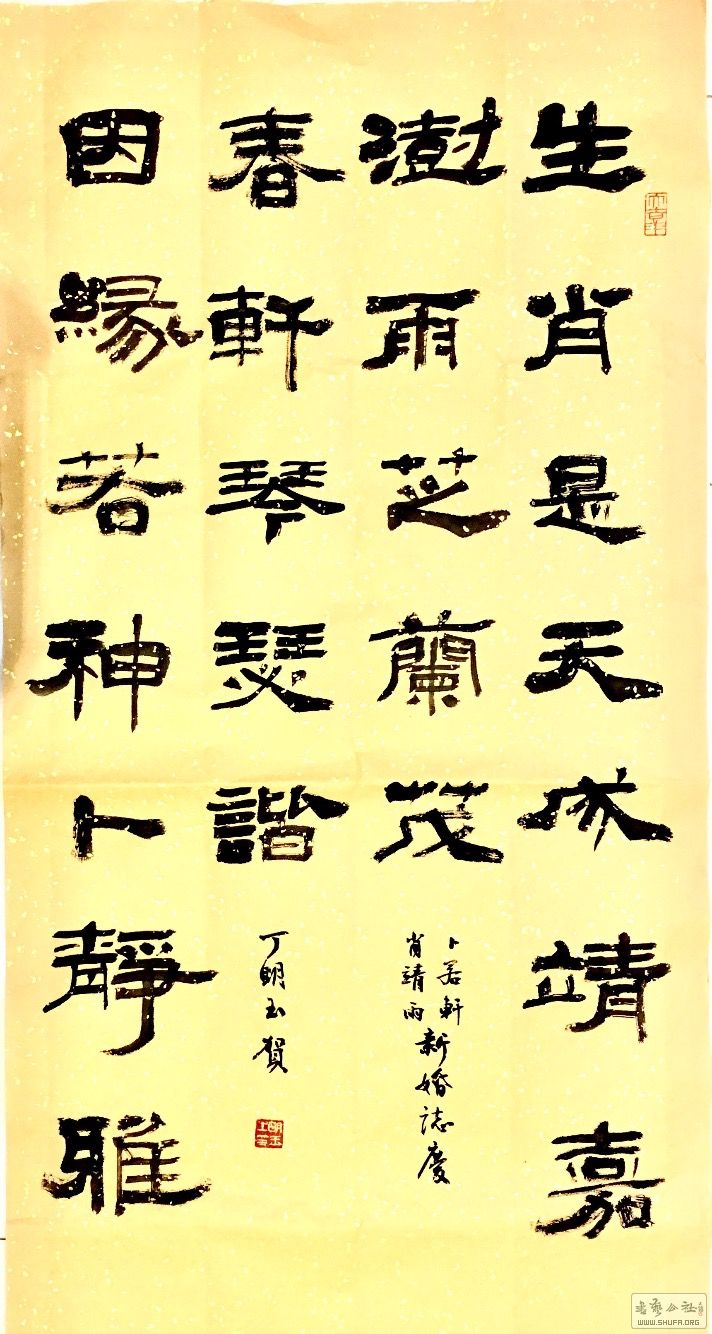 生肖是天成靖嘉
澍雨芝蘭茂
卜若軒
肖靖雨
新婚誌慶
因緣若神卜靜雅
春軒琴瑟諧
丁朙玉賀
WWW.SHUFA.ORG